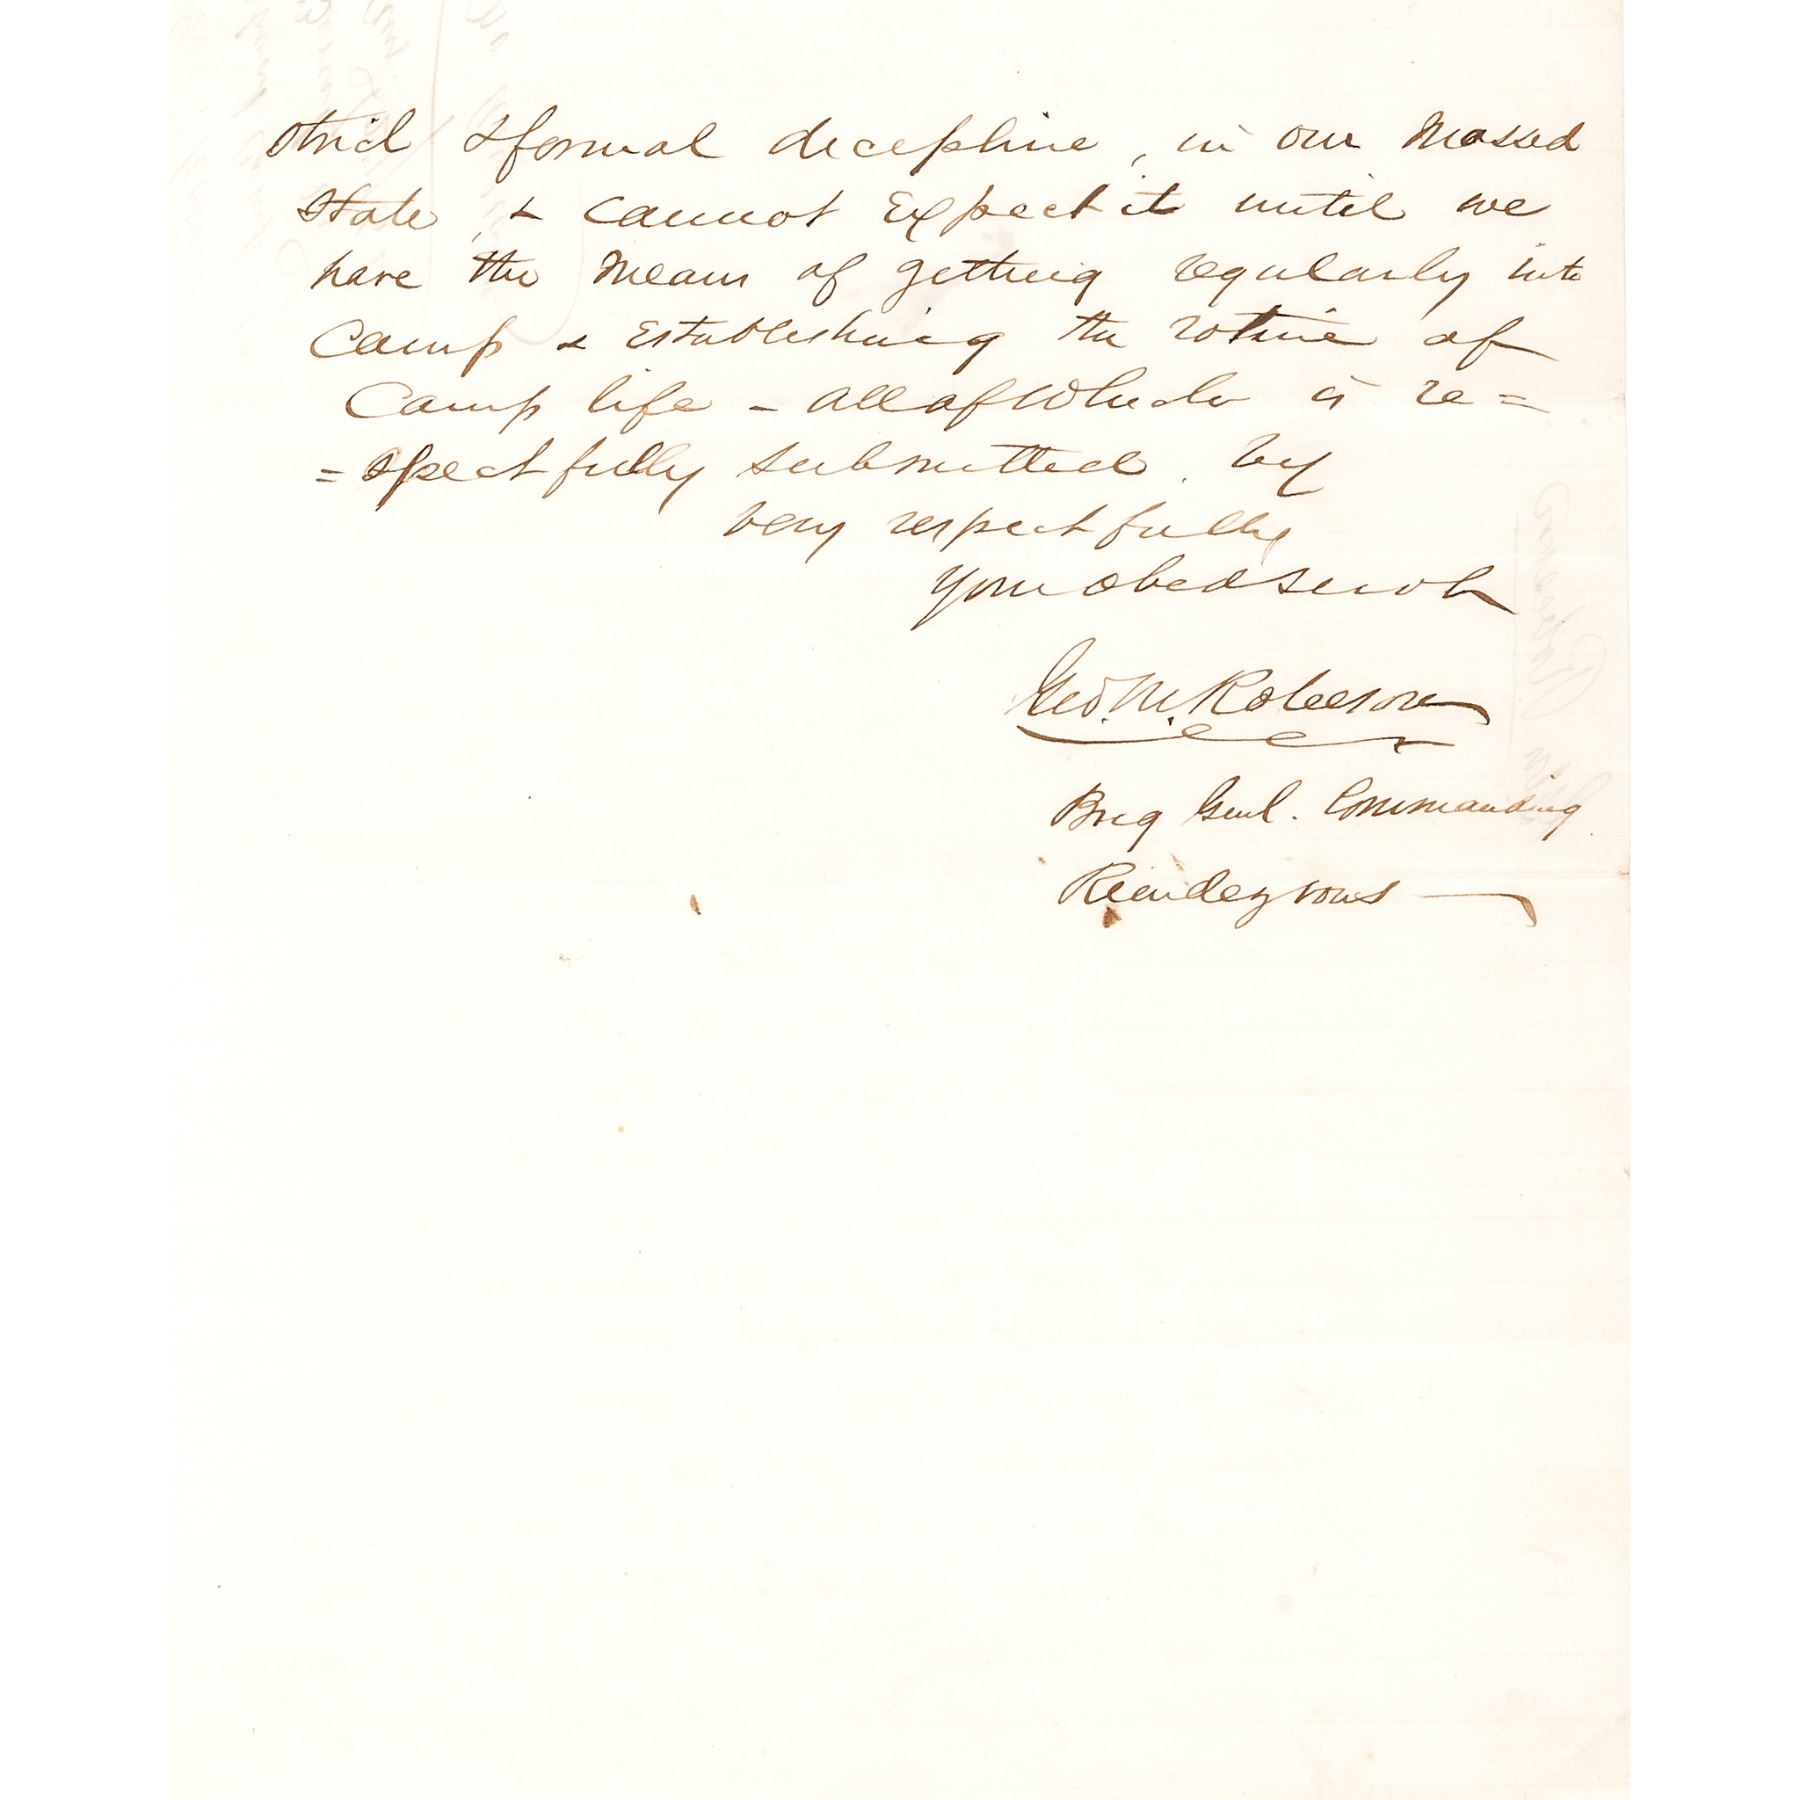 Strict & formal decepline, in our Massed
State, & cannot Expect it until we
have the Means of getting regularly into
Camp & Establishing the rotine of
Camp life - all of which is re=
=spectfully submitted. by
very respectfully
your obed servt
Geo. M. Robeson
Brig Genl. Commanding
Rendezvous